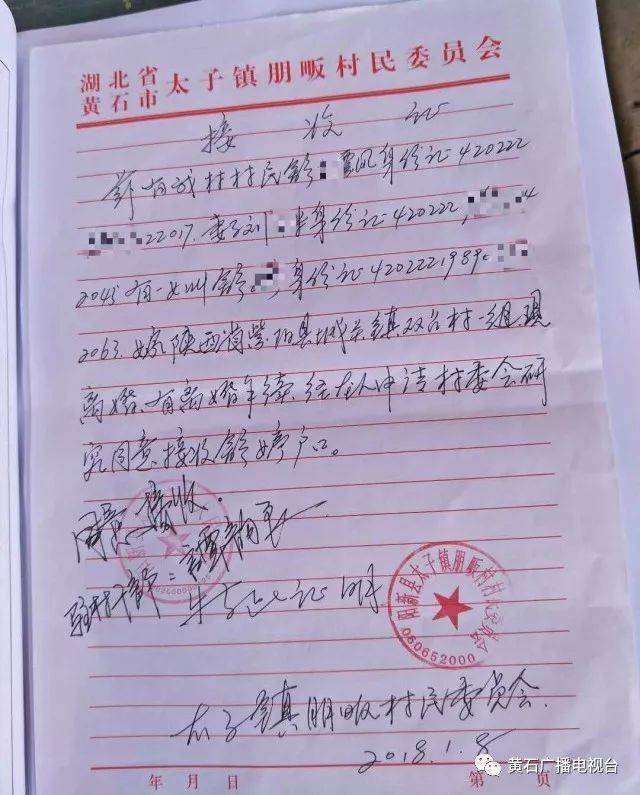 湖北省
黄石市 太子镇朋畈村民委员会
接收证
兹有我村村民舒 凤身份证420222
22017.妻子刘 身份证420222, 4
2045有一女叫舒 ,身份证4202221989
2063.嫁陕西省紫阳县城关镇双台村一组,现
离婚、有离婚手续、经本人申请村委会研
究同意接收舒婷户口。
同意接收.
驻村干部:
特此证明
阳新县太子镇朋畈村村民委员会
060652000
太子镇朋畈村民委员会.
2018.1.8
年 月 日 第 页
黄石广播电视台